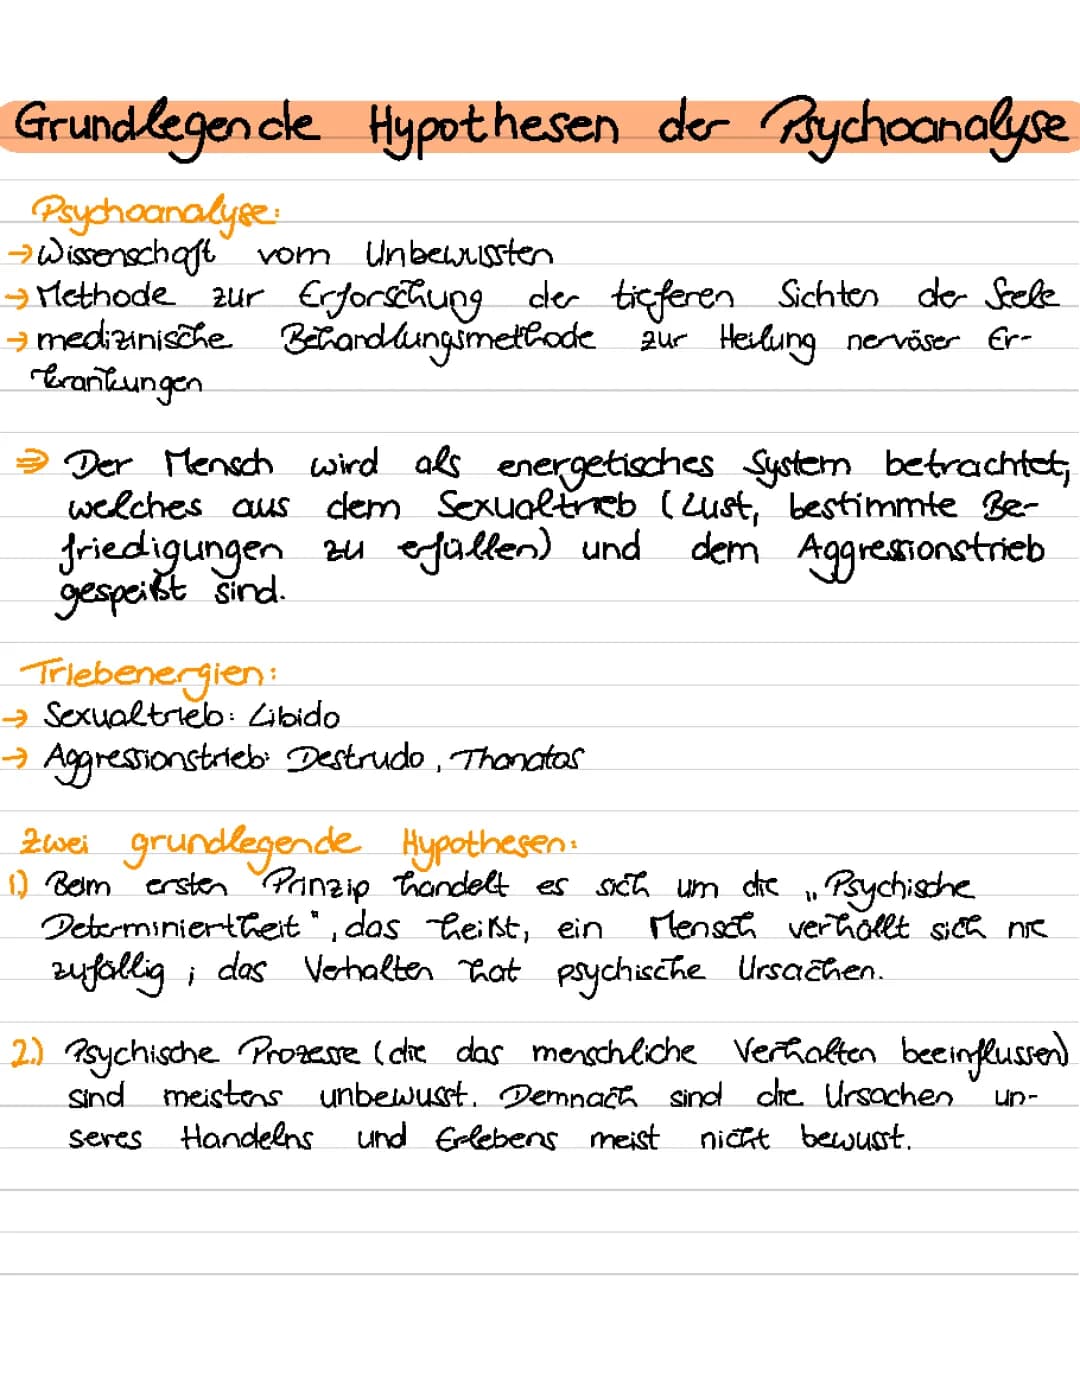 Grundlegende Hypothesen der Psychoanalyse
Psychoanalyse:
→ Wissenschaft vom Unbewussten
→ Methode zur Erforschung der tieferen Sichten der Seele
→ medizinische Behandlungsmethode zur Heilung nervöser Er-
krankungen
⇒ Der Mensch wird als energetisches System betrachtet,
welches aus dem Sexualtrieb (Lust, bestimmte Be-
friedigungen zu erfüllen) und dem Aggressionstrieb
gespeißt sind.
Triebenergien:
→ Sexualtrieb: Libido
→ Aggressionstrieb: Destrudo, Thanatos
Zwei grundlegende Hypothesen:
1.) Beim ersten Prinzip handelt es sich um die „Psychische
Determiniertheit", das heißt, ein Mensch verhällt sich nie
zufällig; das Verhalten hat psychische Ursachen.
2.) Psychische Prozesse (die das menschliche Verhalten beeinflussen)
sind meistens unbewusst. Demnach sind die Ursachen un-
seres Handelns und Erlebens meist nicht bewusst.